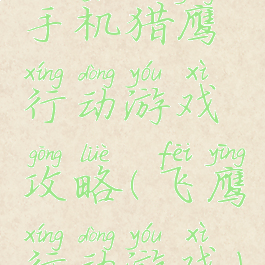 手机猎鹰
xíng dòng yóu xì
行动游戏
gōng lüè fēi yīng
攻略(飞鹰
xíng dòng yóu xì
行动游戏)